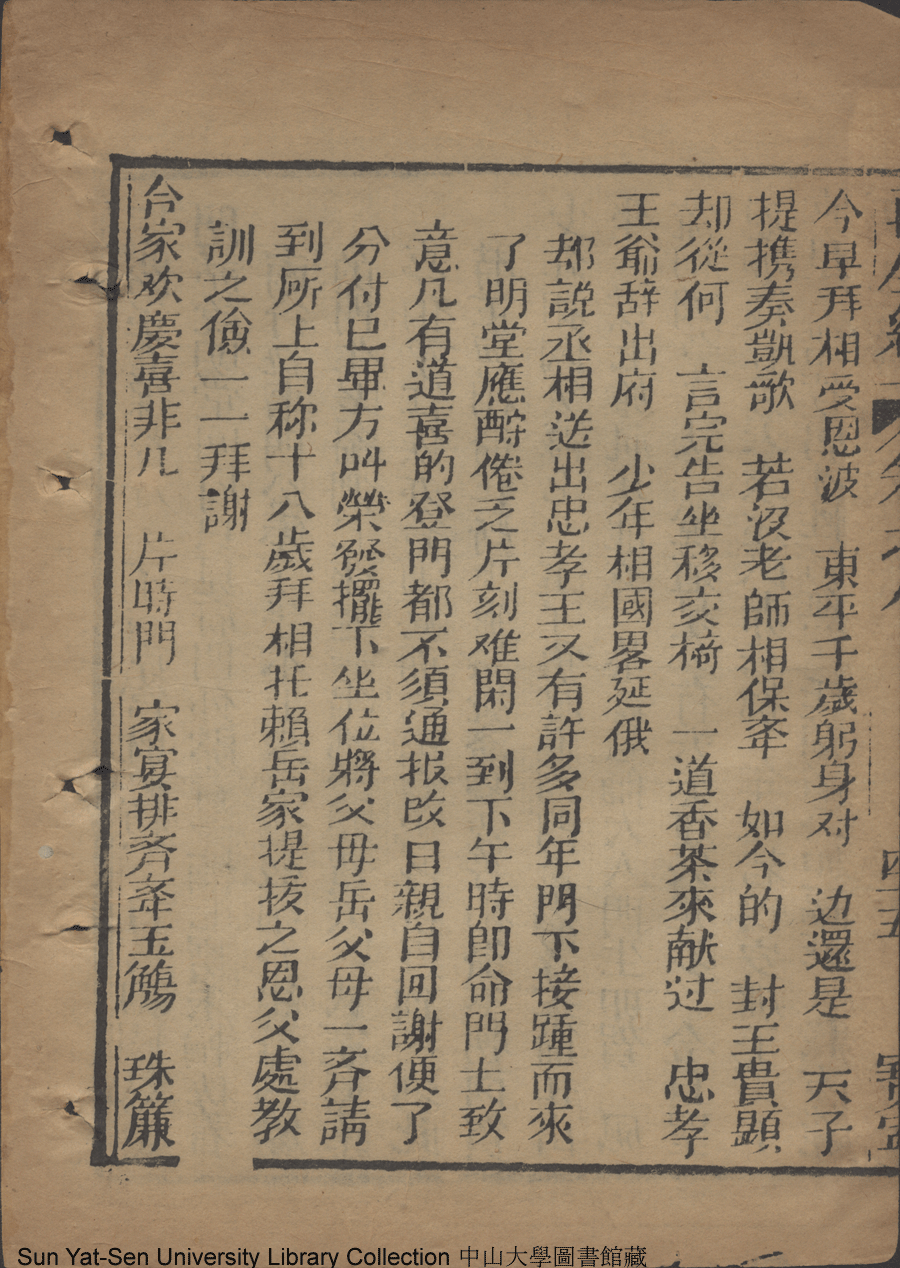 今早拜相受恩波 東平千歲躬身对 边還是 天子
提携奏凱歌 若没老師相保奉 如今的 封王貴顕
却從何 言完告坐移交椅 一道香茶來献过 忠孝
王爺辞出府 少年相國畧延俄
却説丞相送出忠孝王又有許多同年門下接踵而來
了明堂應酧倦乏片刻难閑一到下午時即命門士致
意凡有道喜的登門都不須通报改日親自回謝便了
分付已畢方叫榮發擺下坐位將父母岳父母一齐請
到所上自称十八歲拜相托賴岳家提拔之恩父處教
訓之俭一一拜謝
合家欢慶喜非凡 片時門 家宴排齐奉玉觴 珠簾
四十五
Sun Yat-Sen University Library Collection 中山大學圖書館藏